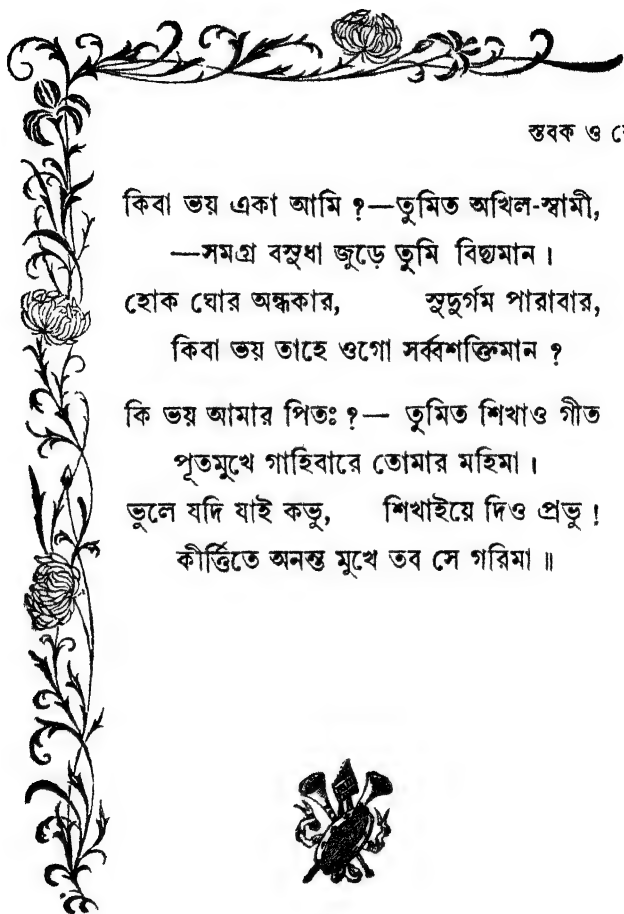 স্তবক ও
কিবা ভয় একা আমি ?—তুমিত অখিল-স্বামী,
—সমগ্র বসুধা জুড়ে তুমি বিদ্যমান।
হোক ঘোর অন্ধকার, সুদুর্গম পারাবার,
কিবা ভয় তাহে ওগো সর্ব্বশক্তিমান ?
কি ভয় আমার পিতঃ ?— তুমিত শিখাও গীত
পূতমুখে গাহিবারে তোমার মহিমা।
ভুলে যদি যাই কভু, শিখাইয়ে দিও প্রভু !
কীর্ত্তিতে অনন্ত মুখে তব সে গরিমা॥